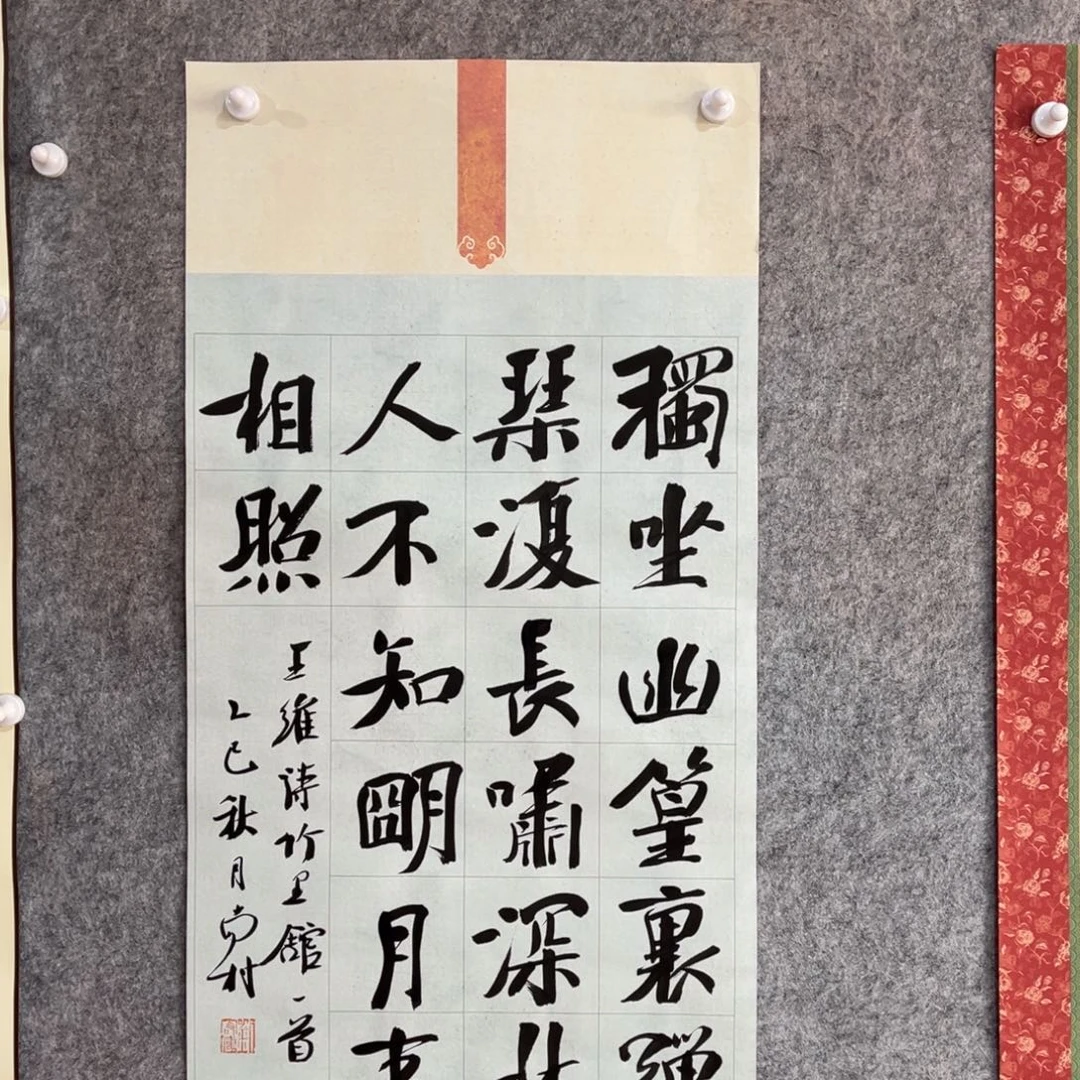 獨坐幽篁裏彈
琴復長嘯深林
人不知朙月來
相照
王維詩竹里館一首
乙巳秋月尚村